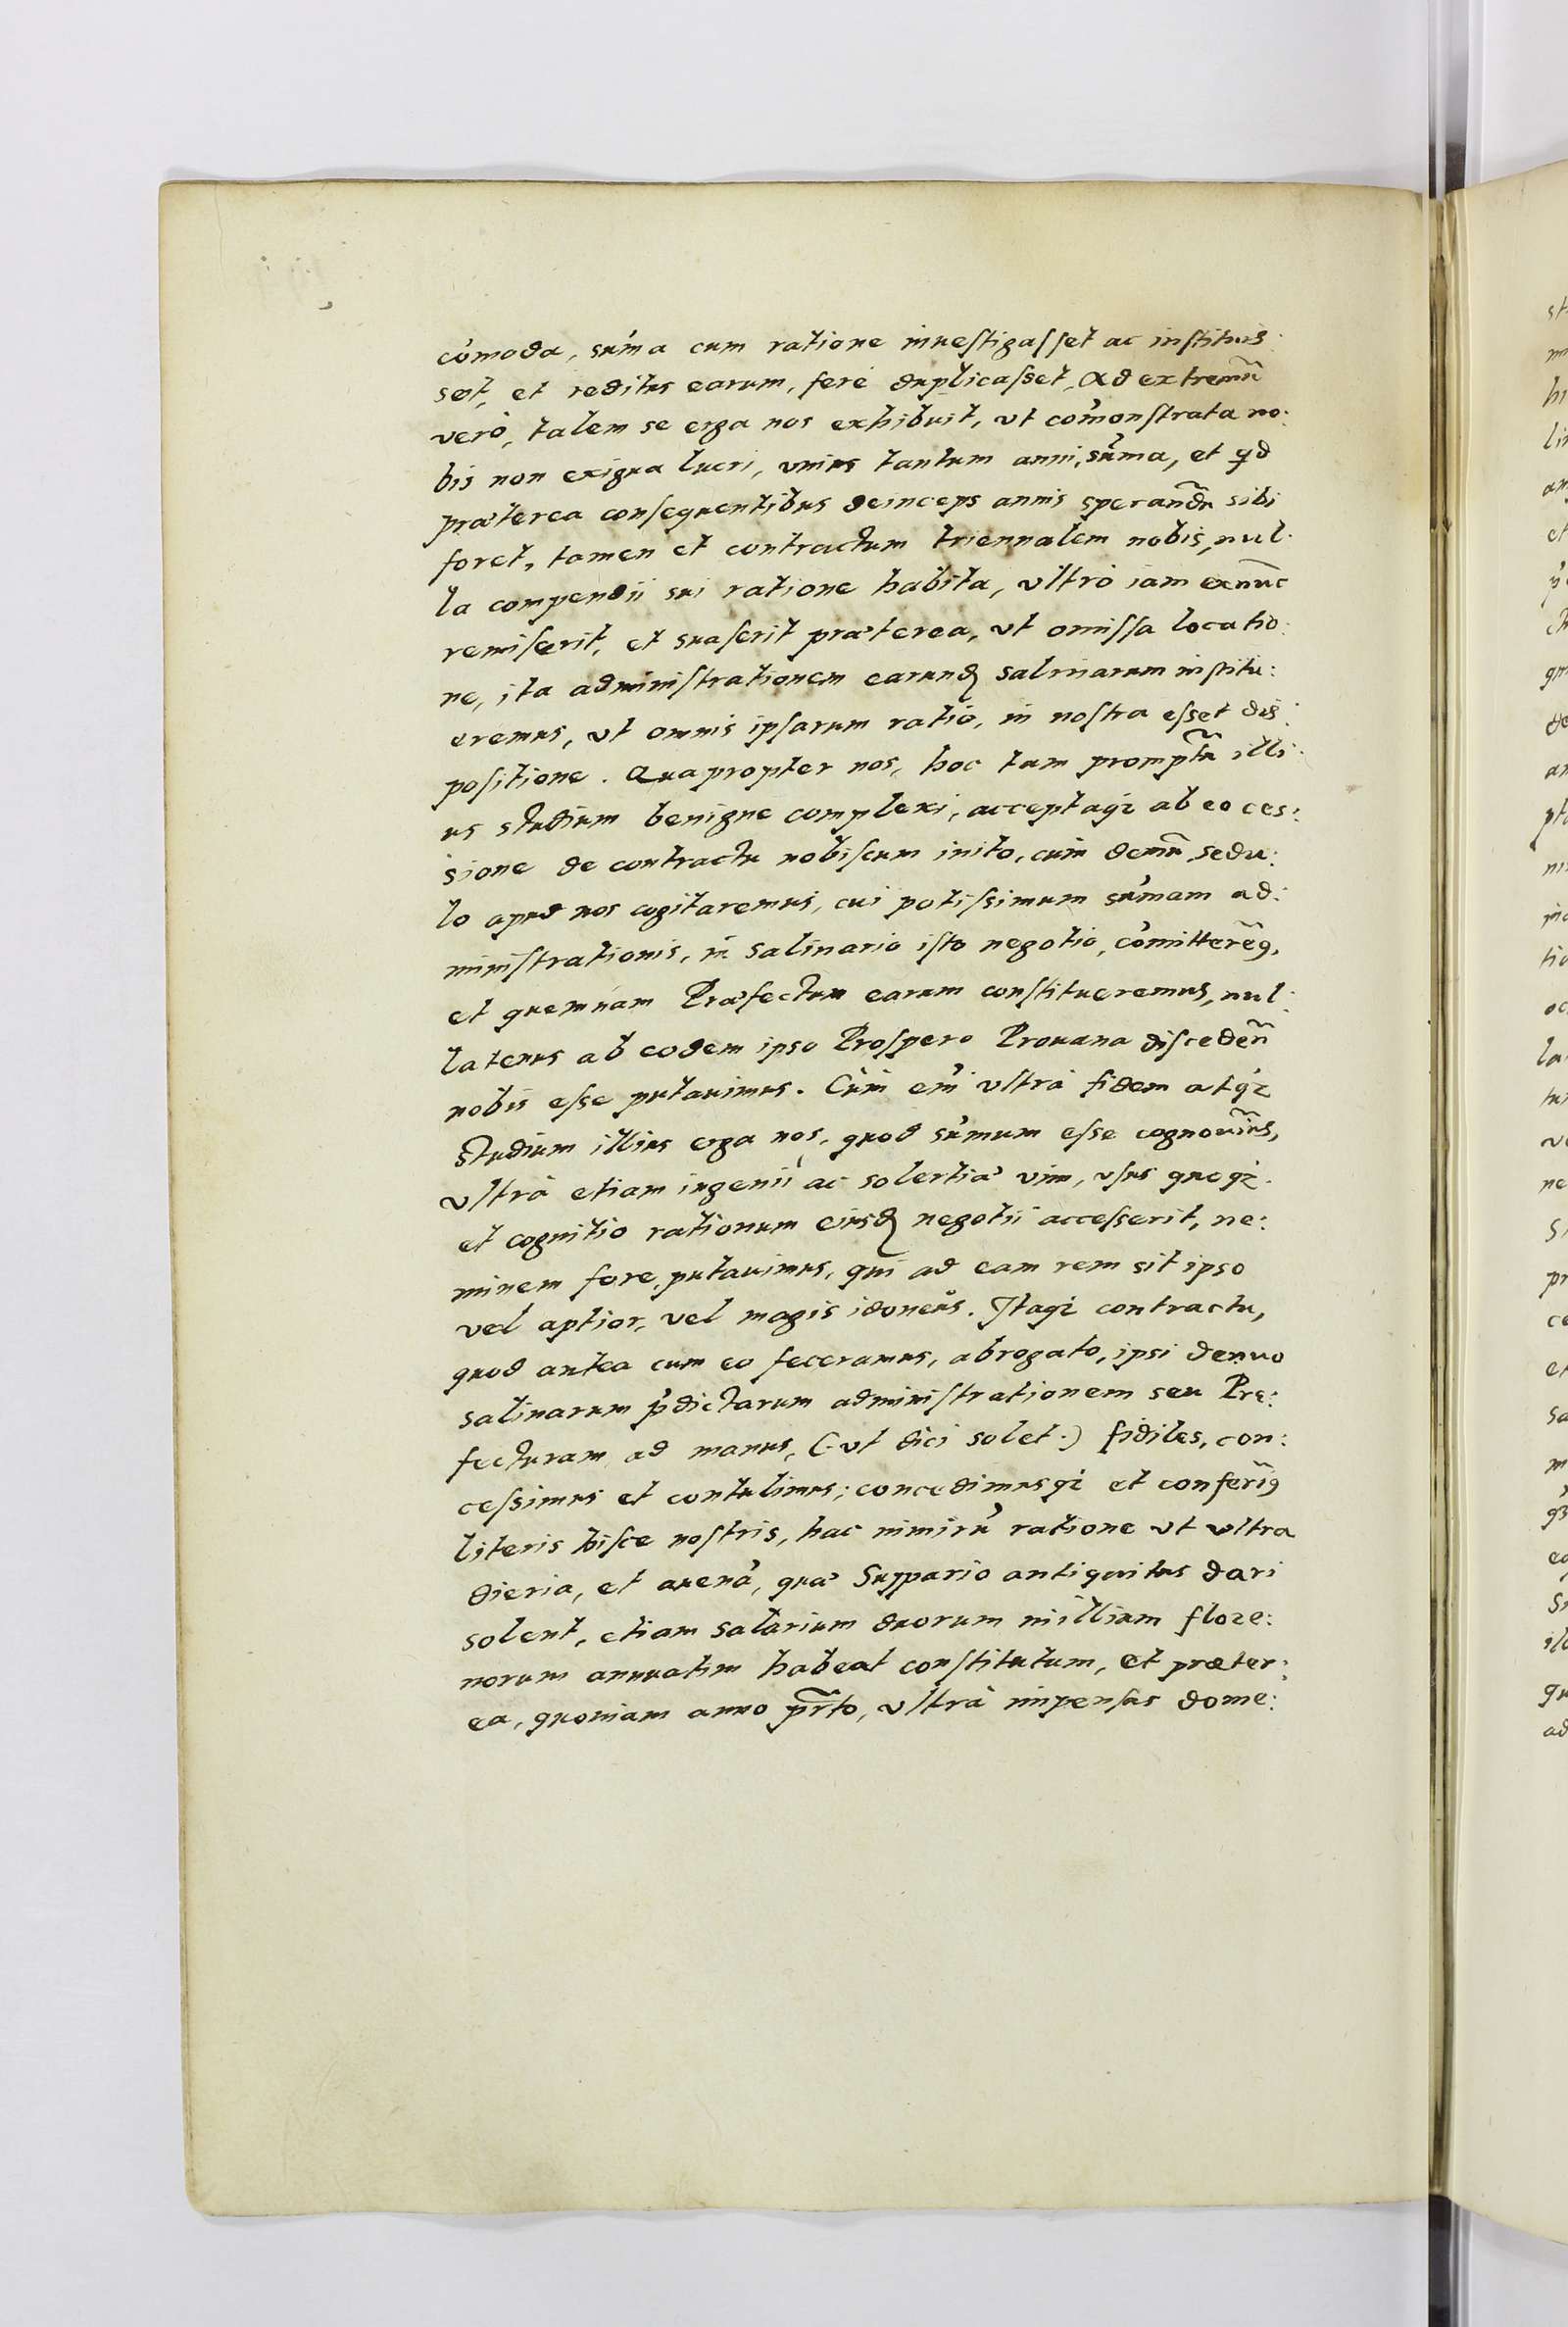 cómoda, sum̃a cum ratione inuestigasset ac instituis:
set, et reditus earum, ferè duplicasset, Ad extremũ
verò, talem se erga nos exhibuit, vt com̃onstrata no:
bis non exigua lucri, vnius tantum anni, sum̃a, et qd
præterea consequentibus deinceps annis sperandũ sibi
foret, tamen et contractum triennalem nobis, nul:
la compendii sui ratione habita, vltrò iam exnũc
remiserit, et suaserit præterea, vt omissa locatio:
ne, ita administrationem earundẽ salinarum institu:
eremus, vt omnis ipsarum ratio, in nostra esset dis:
positione. Quapropter nos, hoc tam promptũ illi:
us studium benigne complexi, acceptaqꝫ ab eo ces:
sione de contractu nobiscum inito, cum demũ sedu:
lo apud nos cogitaremus, cui potissimum sum̃am ad:
ministrationis, in salinario isto negotio, com̃itterẽꝰ,
et quemnam Præfectum earum constitueremus, nul:
latenus ab eodem ipso Prospero Prouana discedẽn
nobis esse putauimus. Cùm em̃ vltrà fidem atqꝫ
studium illius erga nos, quod sum̃um esse cognouim̃s,
vltrà etiam ingenii ac solertiæ vim, vsus queqꝫ
et cognitio rationum eiusdẽ negotii accesserit, ne:
minem fore, putauimus, qui ad eam rem sit ipso
vel aptior, vel magis idoneus. Itaqꝫ contractu,
quod antea cum eo feceramus, abrogato, ipsi denuo
salinarum p̃dictarum administrationem seu Præ:
fecturam ad manus, (vt dici solet) fidiles, con:
cessimus et contulimus; concedimusqꝫ et conferim̃ꝰ
literis hisce nostris, hac nimirũ ratione vt vltra
dieria, et auenã, quæ Suppario antiquitus dari
solent, etiam salarium duorum millium flore:
norum annuatim habeat constitutum, et præter:
ea, quoniam anno pr̃to, vltrà impensas dome: